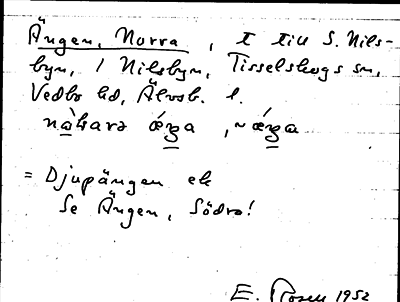 Ängen, Norra, t till S. Nils-
byn, 1 Nilsbyn, Tisselskogs sn,
Vedbo hd, Älvsb. l.
= Djupängen ek
Se Ängen, Södra!
E. Rosen 1952